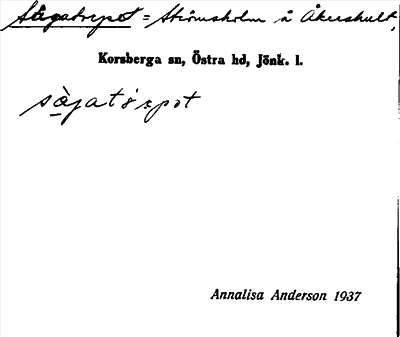 Sågatorpet = Strömsholm å Åkershult,
Korsberga sn, Östra hd, Jönk. l.
sàgatórpət
Annalisa Anderson 1937